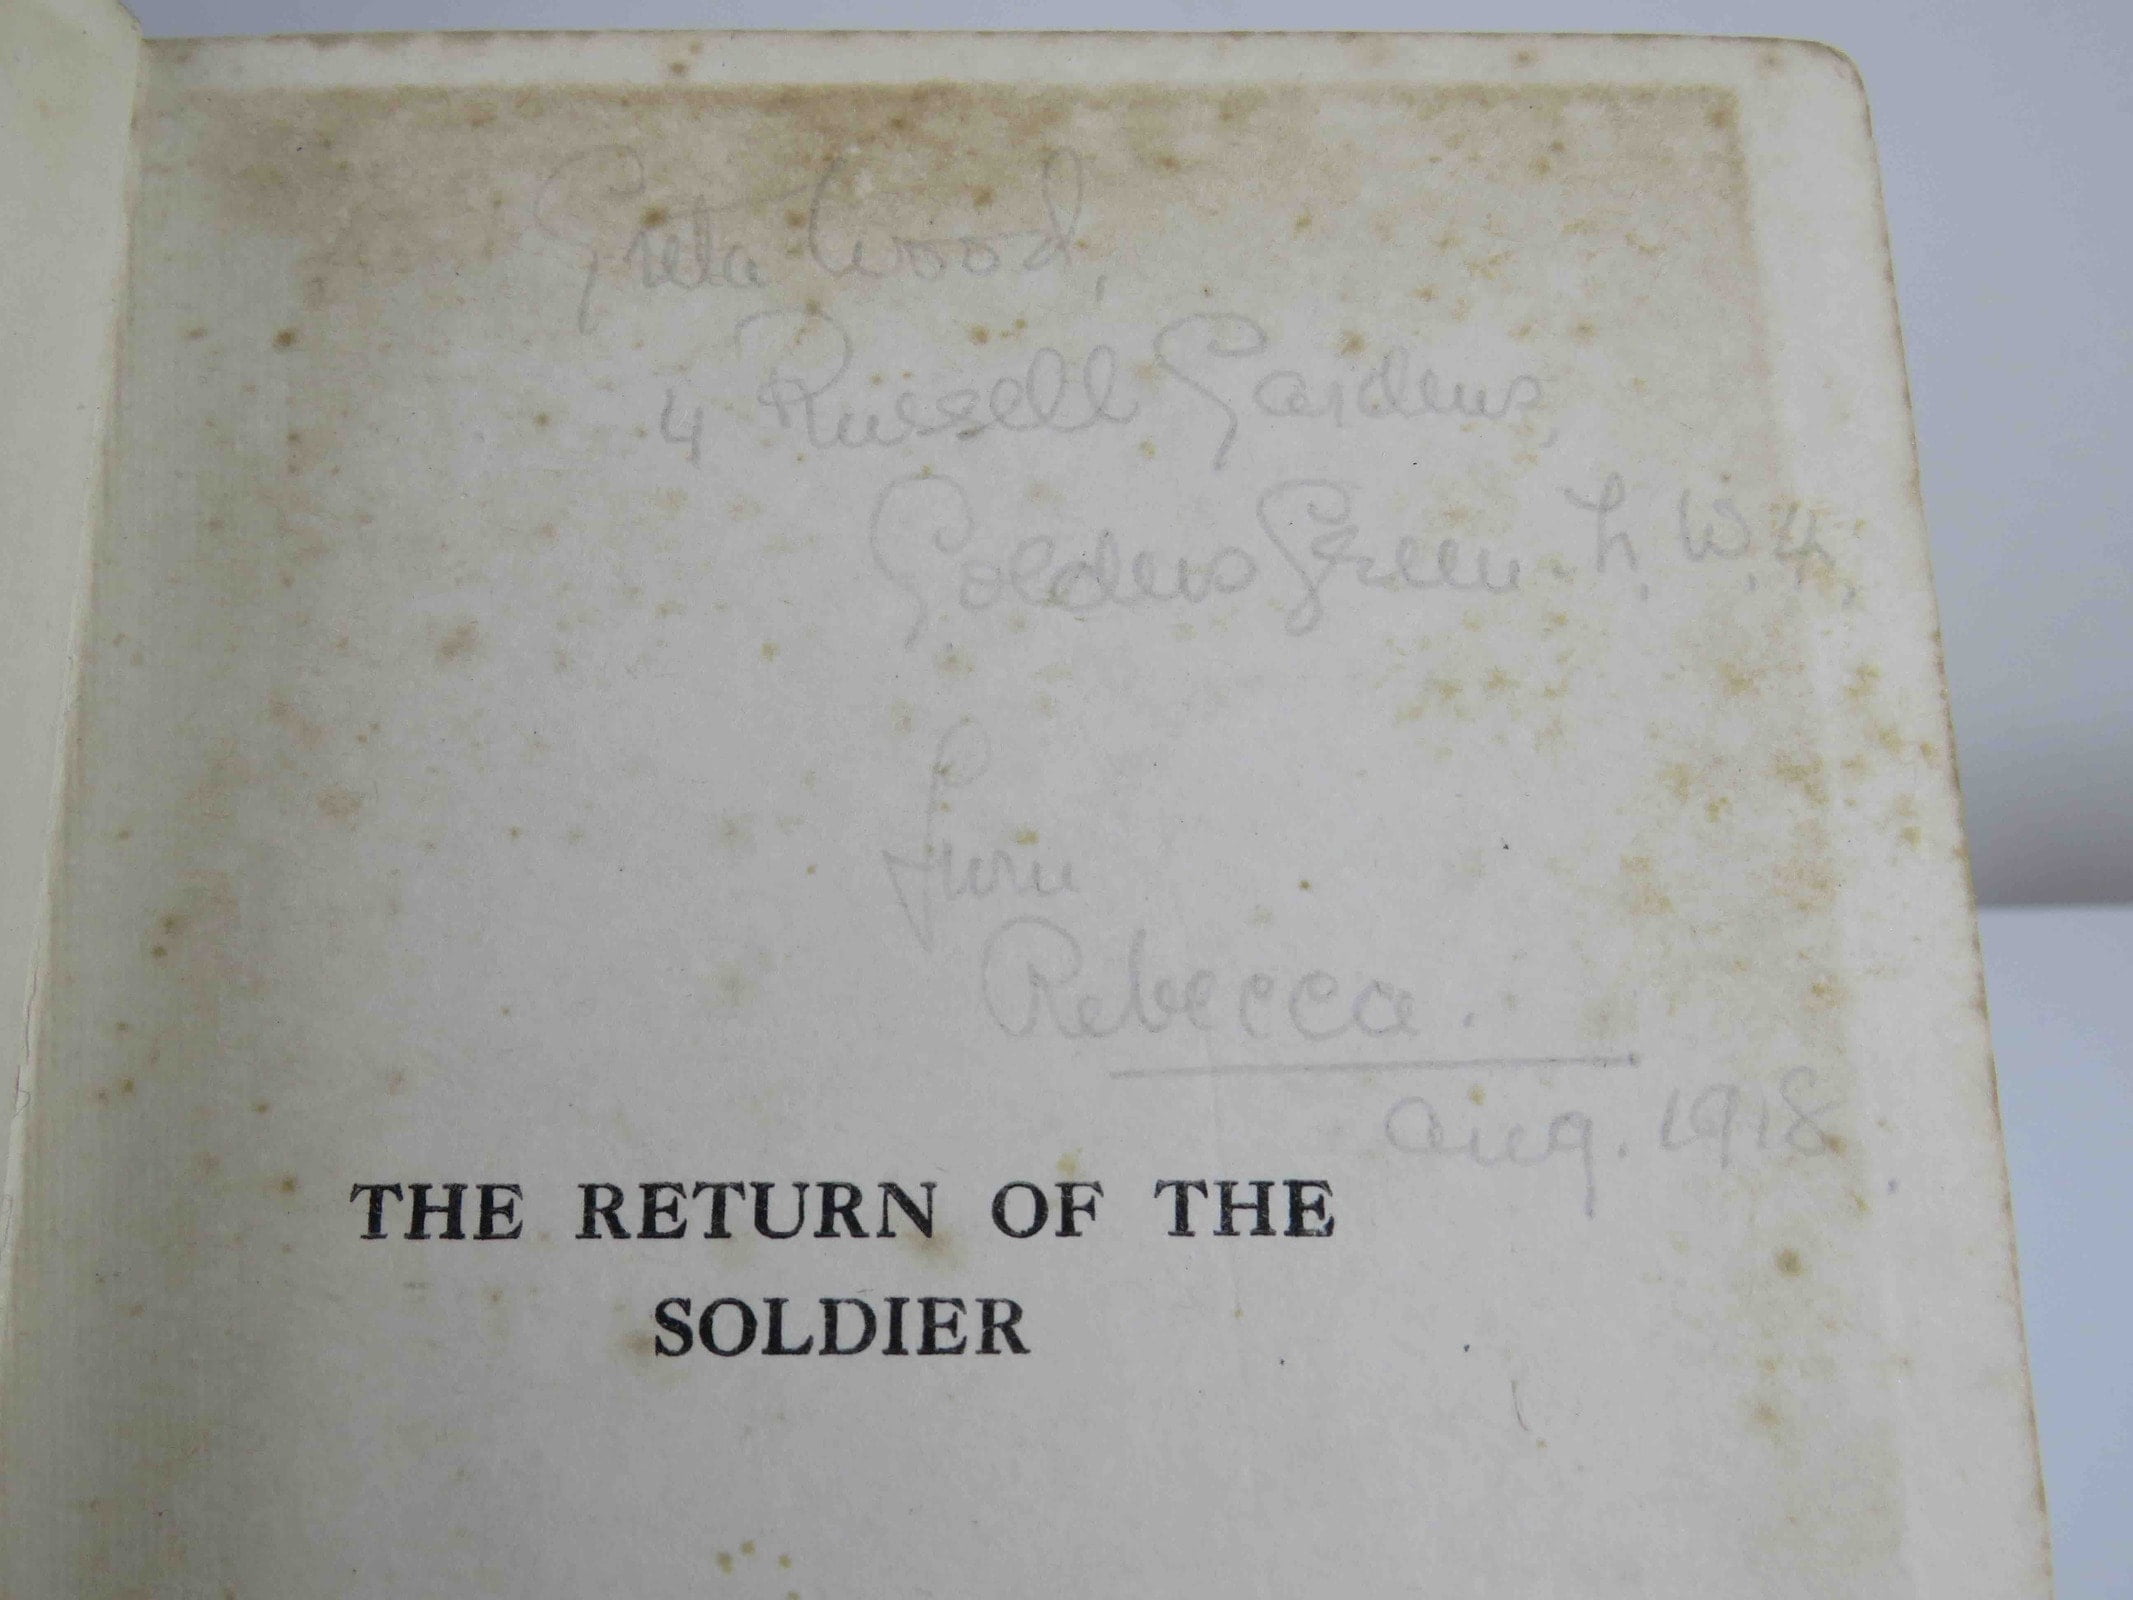 Greta Wood,
4 Russell Gardens,
Golders Green. N. W. 4.
from
Rebecca.
Aug. 1918.
THE RETURN OF THE
SOLDIER